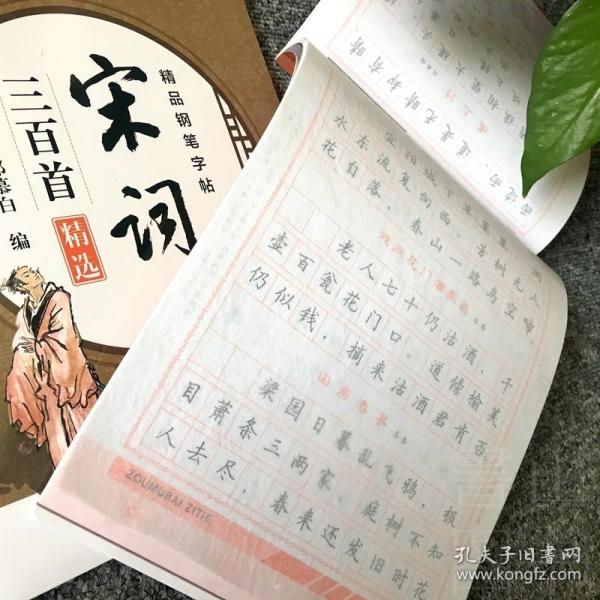 精品钢笔字帖
宋词
三百首
精选
慕白 编
宜阳城下草萋萋
水东流复向西。芳树无人
花自落,春山一路鸟空啼
戏问花门酒家翁
老人七十仍沽酒,千
壶百瓮花门口。道傍榆荚
仍似钱,摘来沽酒君肯否
山房春事
梁园日暮乱飞鸦,极
目萧条三两家。庭树不知
人去尽,春来还发旧时花
ZOUMUBAI ZITIE
边雨,道是无晴却有晴
孔夫子旧书网
www.kongfz.com